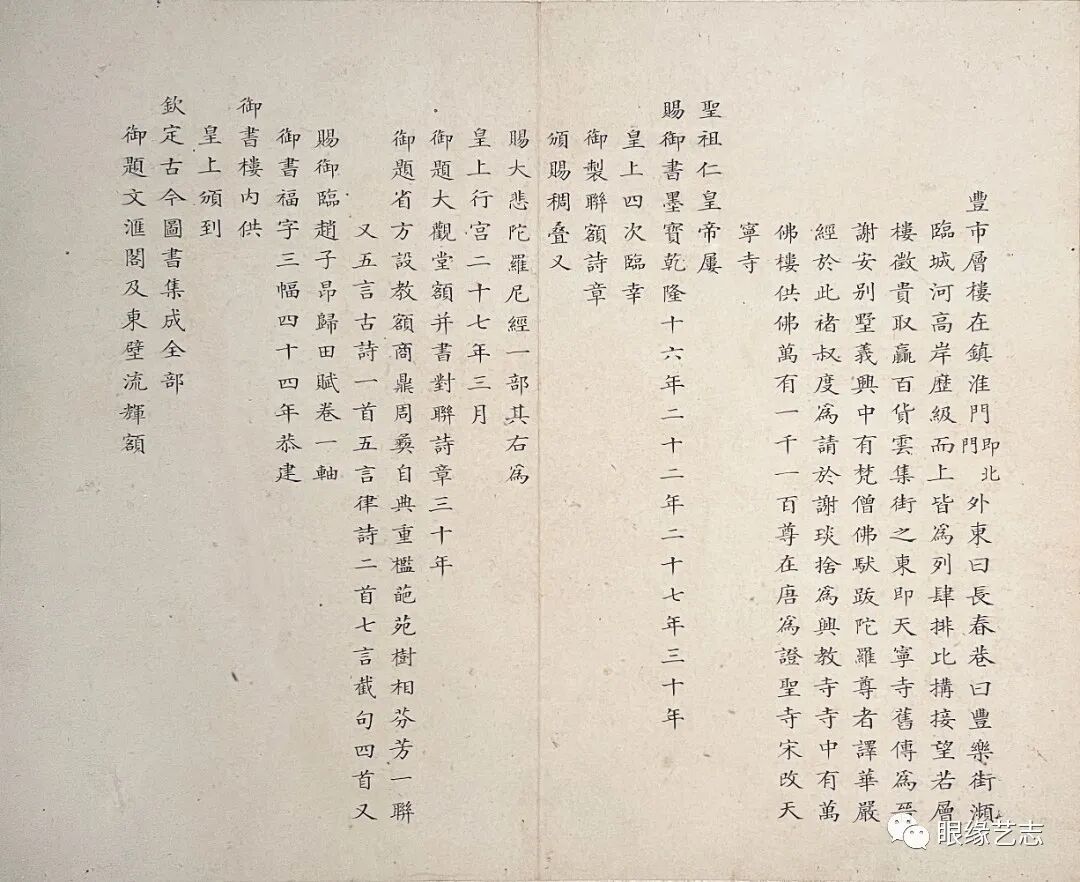 豐市層樓在鎮淮門即北門外東曰長春巷曰豐樂街瀕
臨城河高岸歷級而上皆為列肆排比搆接望若層
樓徵貴取贏百貨雲集街之東即天寧寺舊傳為晉
謝安別墅義興中有梵僧佛馱跋陀羅尊者譯華嚴
經於此褚叔度為請於謝琰捨為興教寺寺中有萬
佛樓供佛萬有一千一百尊在唐為證聖寺宋改天
寧寺
聖祖仁皇帝屢
賜御書墨寶乾隆十六年二十二年二十七年三十年
皇上四次臨幸
御製聯額詩章
頒賜稠疊又
賜大悲陀羅尼經一部其右為
皇上行宮二十七年三月
御題大觀堂額并書對聯詩章三十年
御題省方設教額商鼎周彝自典重檻葩苑樹相芬芳一聯
又五言古詩一首五言律詩二首七言截句四首又
賜御臨趙子昂歸田賦卷一軸
御書福字三幅四十四年恭建
御書樓內供
皇上頒到
欽定古今圖書集成全部
御題文滙閣及東壁流輝額
眼缘艺志